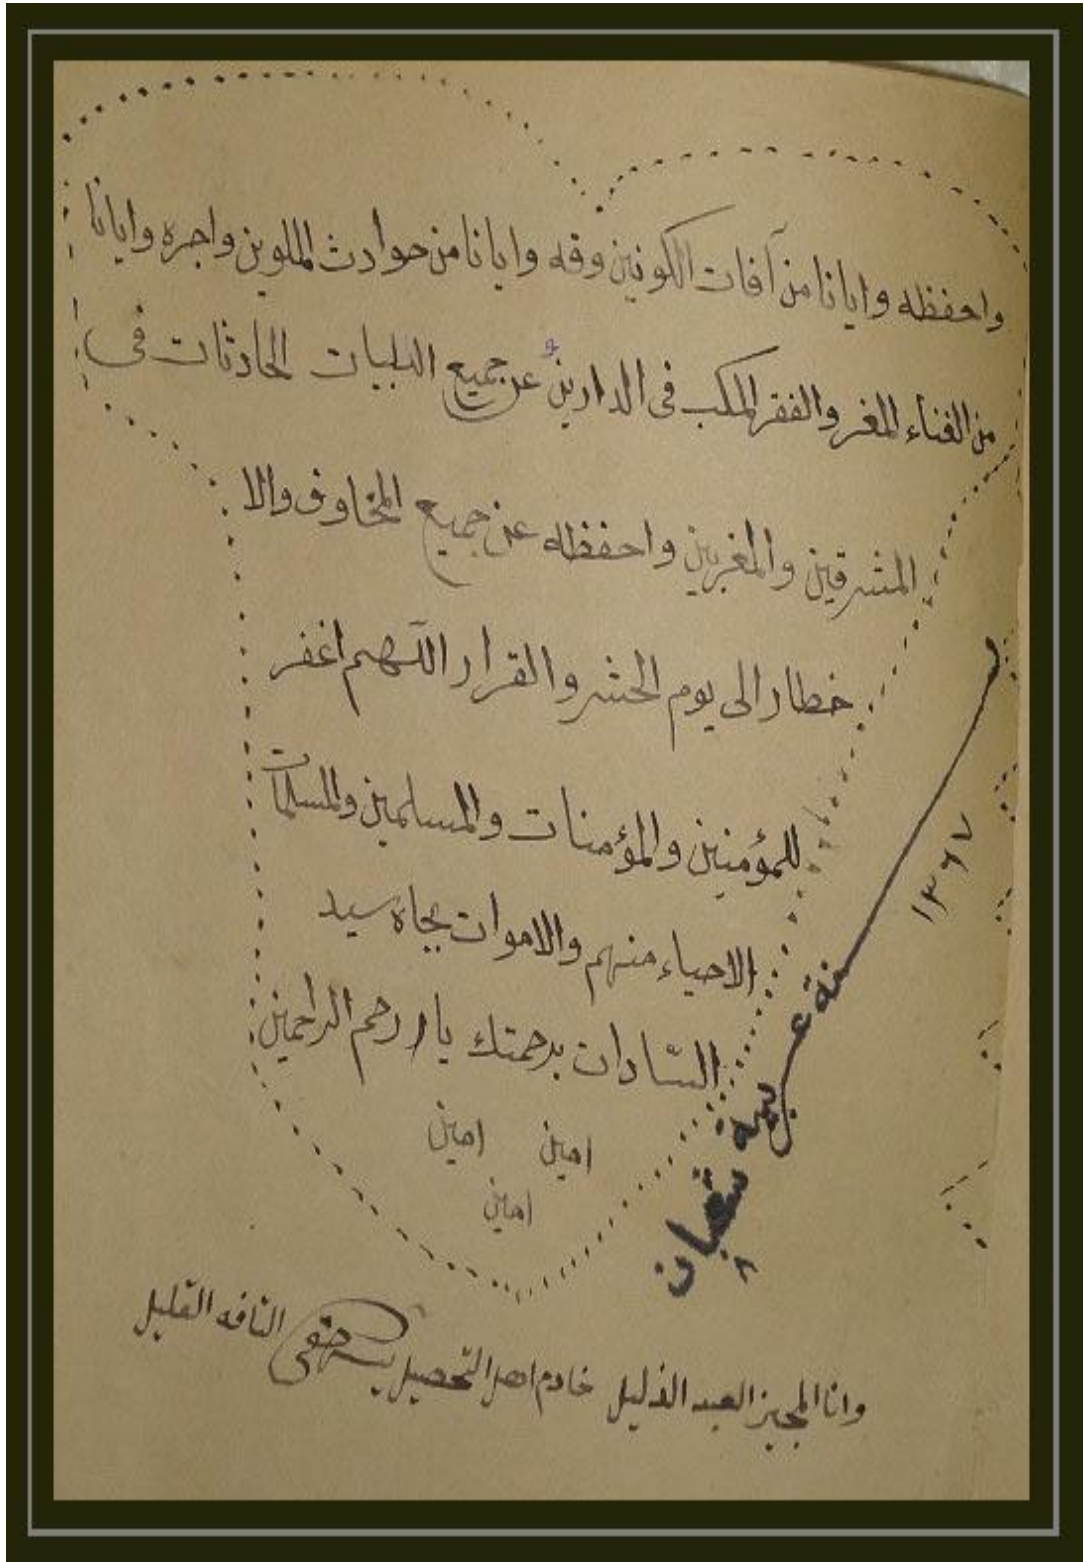 واحفظه وايانا من آفات الكونين وقه وايانا من حوادث الملوين واجره وايانا
من الغناء المغر والفقر المكب فى الدارين عن جميع البليات الحادثات فى
المشرقين والمغربين واحفظه عن جميع المخاوف والا
خطار الى يوم الحشر والقرار اللهم اغفر
للمؤمنين والمؤمنات والمسلمين والمسلمات
الاحياء منهم والاموات بجاه سيد
السّادات برحمتك يا ارحم الراحمين
امين امين
امين
٨ شعبان سنة
١٣٦٧
وانا المجيز العبد الذليل خادم اهل التحصيل حقى التافه القليل